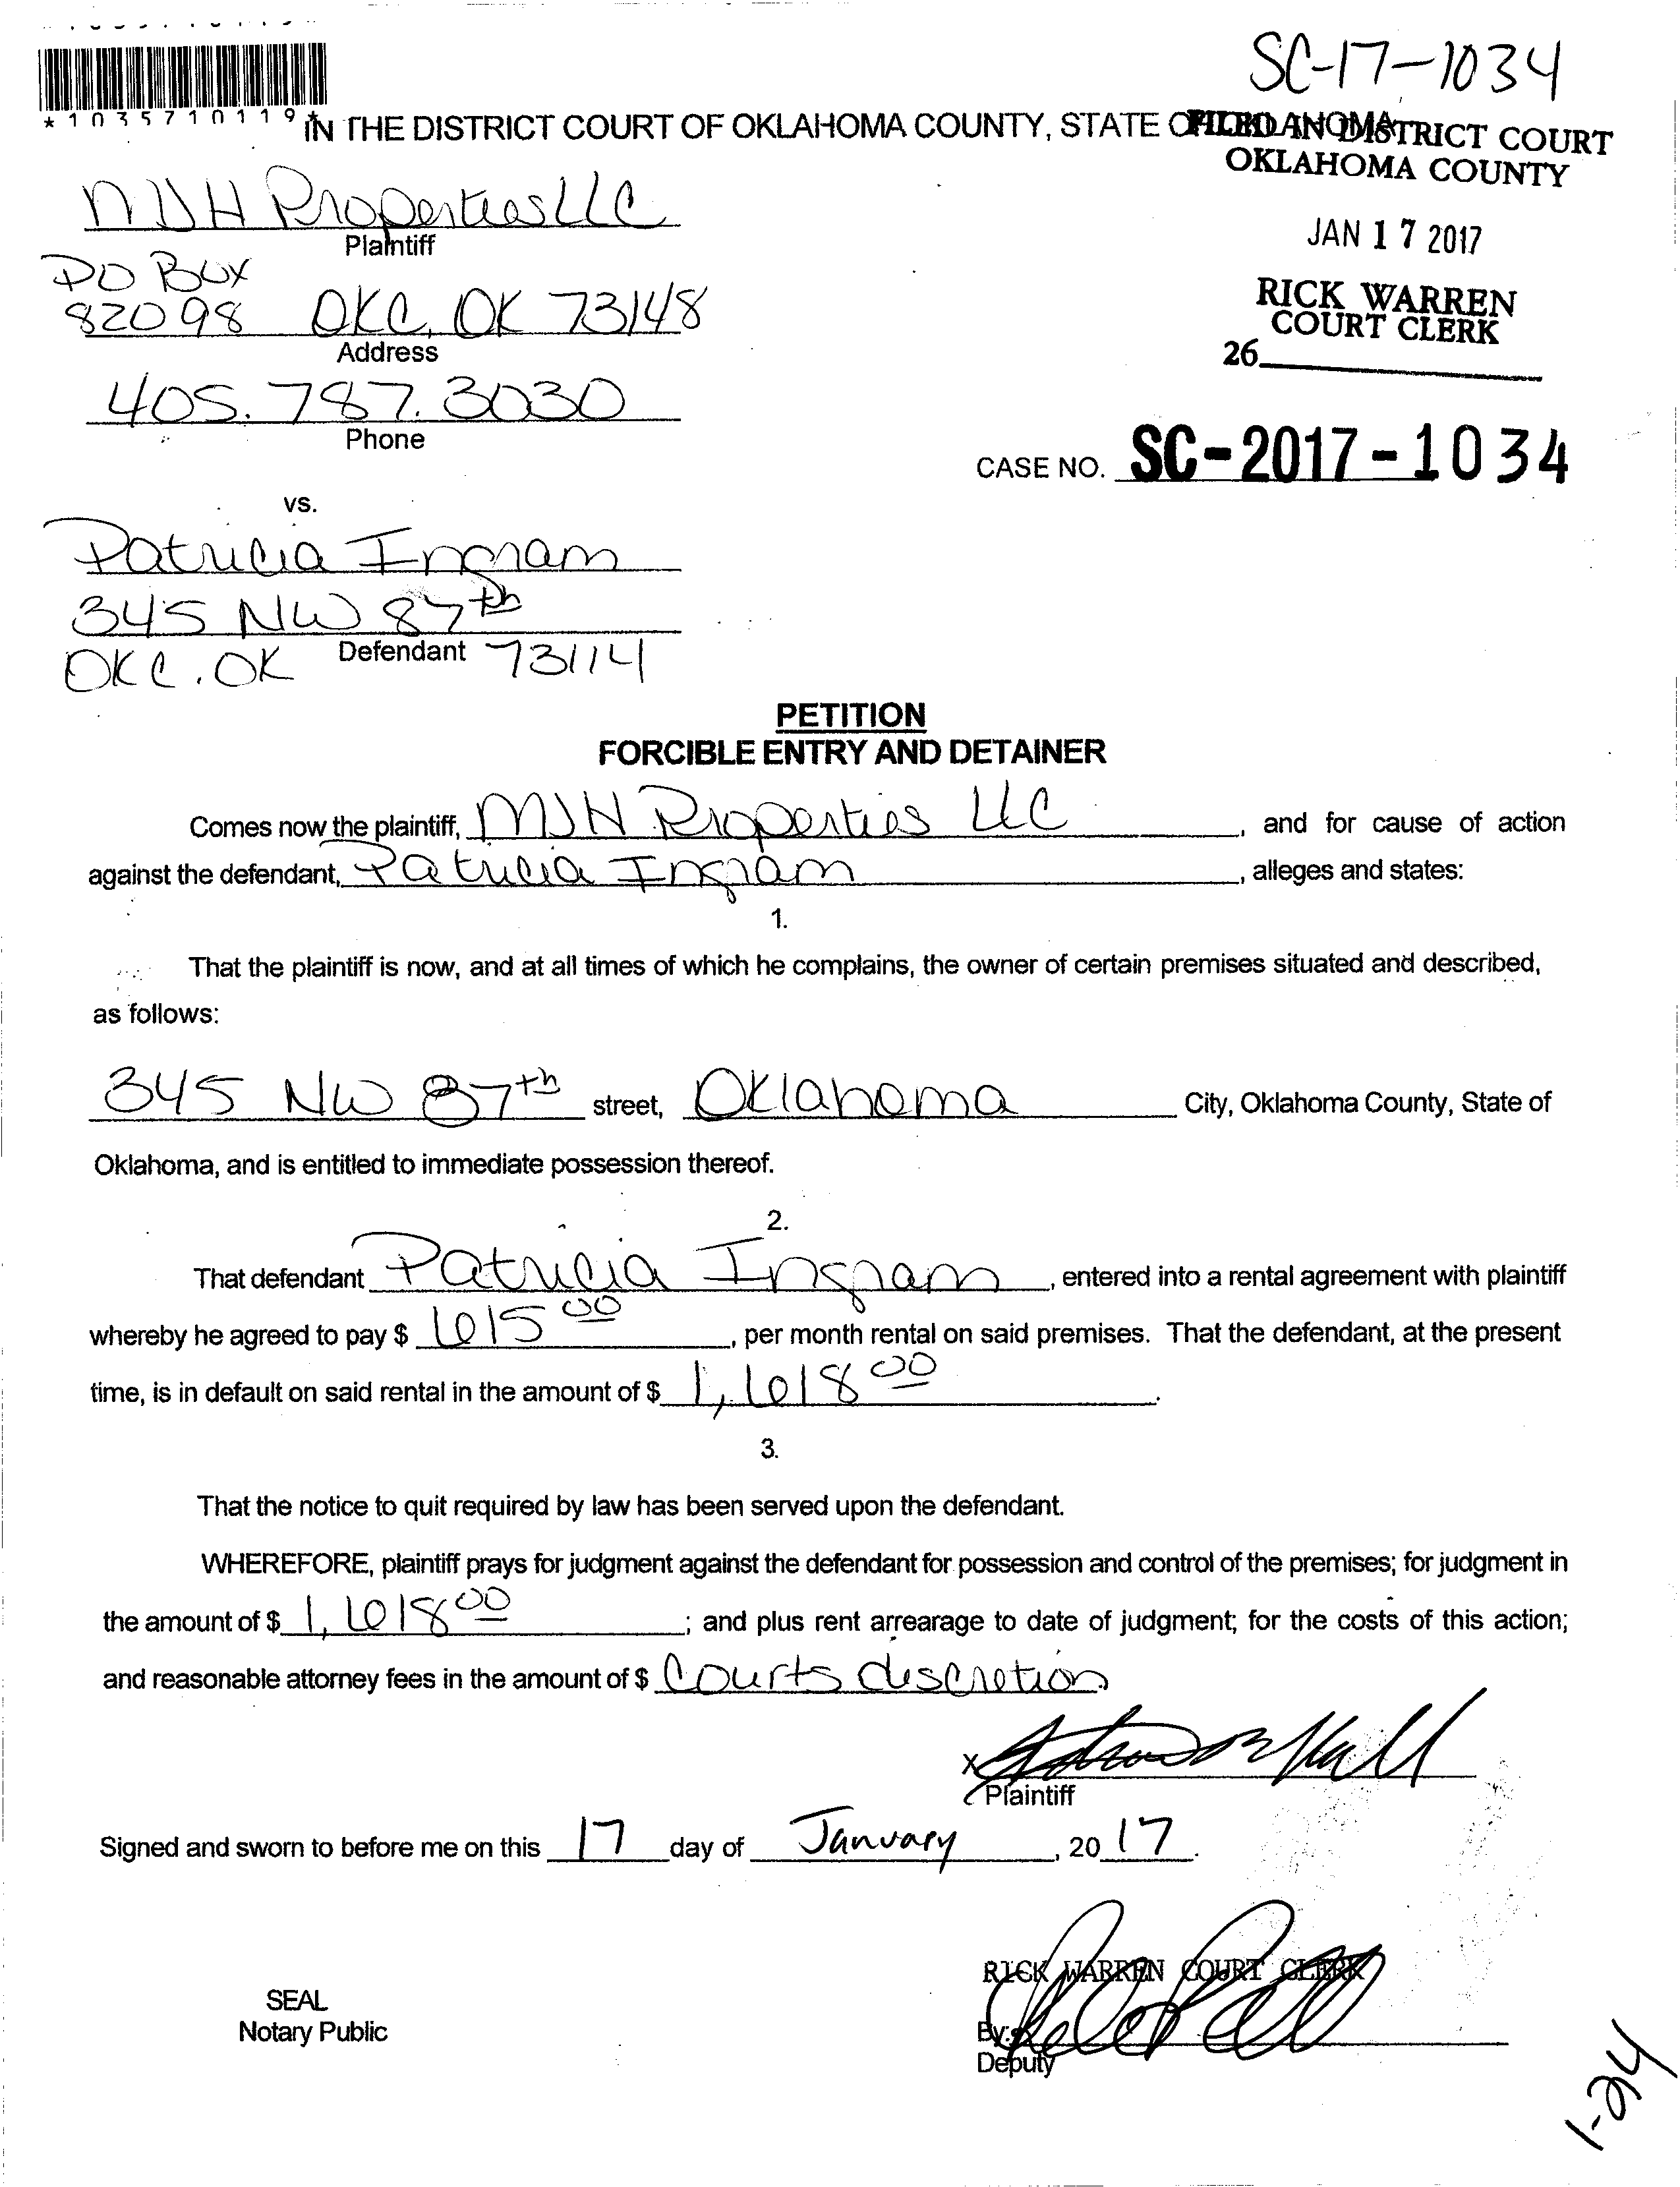 SC-17-1034
* 1 0 3 5 7 1 0 1 1 9 *
IN THE DISTRICT COURT OF OKLAHOMA COUNTY, STATE OF OKLAHOMA
FILED IN DISTRICT COURT
OKLAHOMA COUNTY
JAN 17 2017
RICK WARREN
COURT CLERK
26
MJH Properties LLC
Plaintiff
PO Box
82098 OKC, OK 73148
Address
405.787.3030
Phone
CASE NO. SC-2017-1034
vs.
Patricia Ingram
345 NW 87th
Defendant
OKC. OK 73114
PETITION
FORCIBLE ENTRY AND DETAINER
Comes now the plaintiff, MJH Properties LLC, and for cause of action
against the defendant, Patricia Ingram, alleges and states:
1.
That the plaintiff is now, and at all times of which he complains, the owner of certain premises situated and described,
as follows:
345 NW 87th street, Oklahoma City, Oklahoma County, State of
Oklahoma, and is entitled to immediate possession thereof.
2.
That defendant Patricia Ingram, entered into a rental agreement with plaintiff
whereby he agreed to pay $ 615 00, per month rental on said premises. That the defendant, at the present
time, is in default on said rental in the amount of $ 1,618 00.
3.
That the notice to quit required by law has been served upon the defendant.
WHEREFORE, plaintiff prays for judgment against the defendant for possession and control of the premises; for judgment in
the amount of $ 1,618 00; and plus rent arrearage to date of judgment; for the costs of this action;
and reasonable attorney fees in the amount of $ Courts discretion
X
Plaintiff
Signed and sworn to before me on this 17 day of January, 20 17.
RICK WARREN COURT CLERK
SEAL
Notary Public
By:
Deputy
1-24